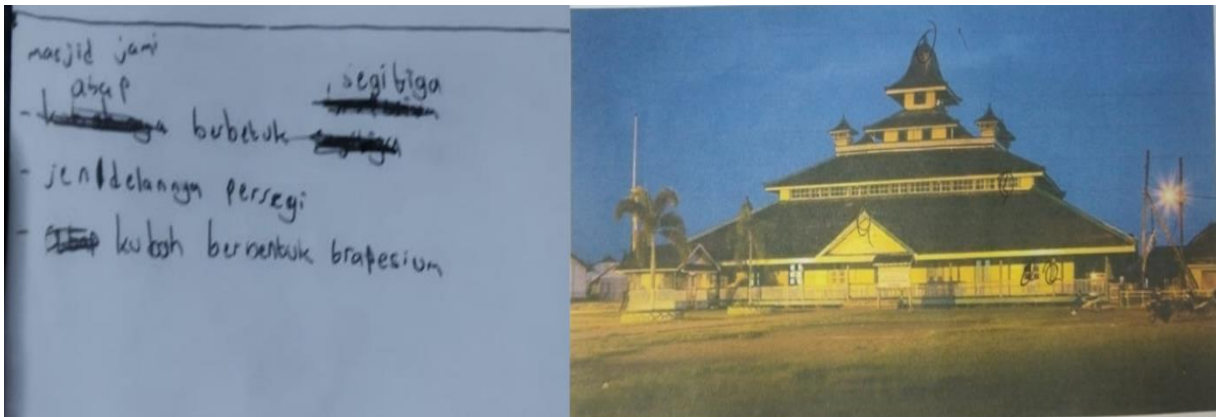 masjid jami
atap segitiga
- berbetuk
- jendelannya persegi
- kubah berbentuk trapesium